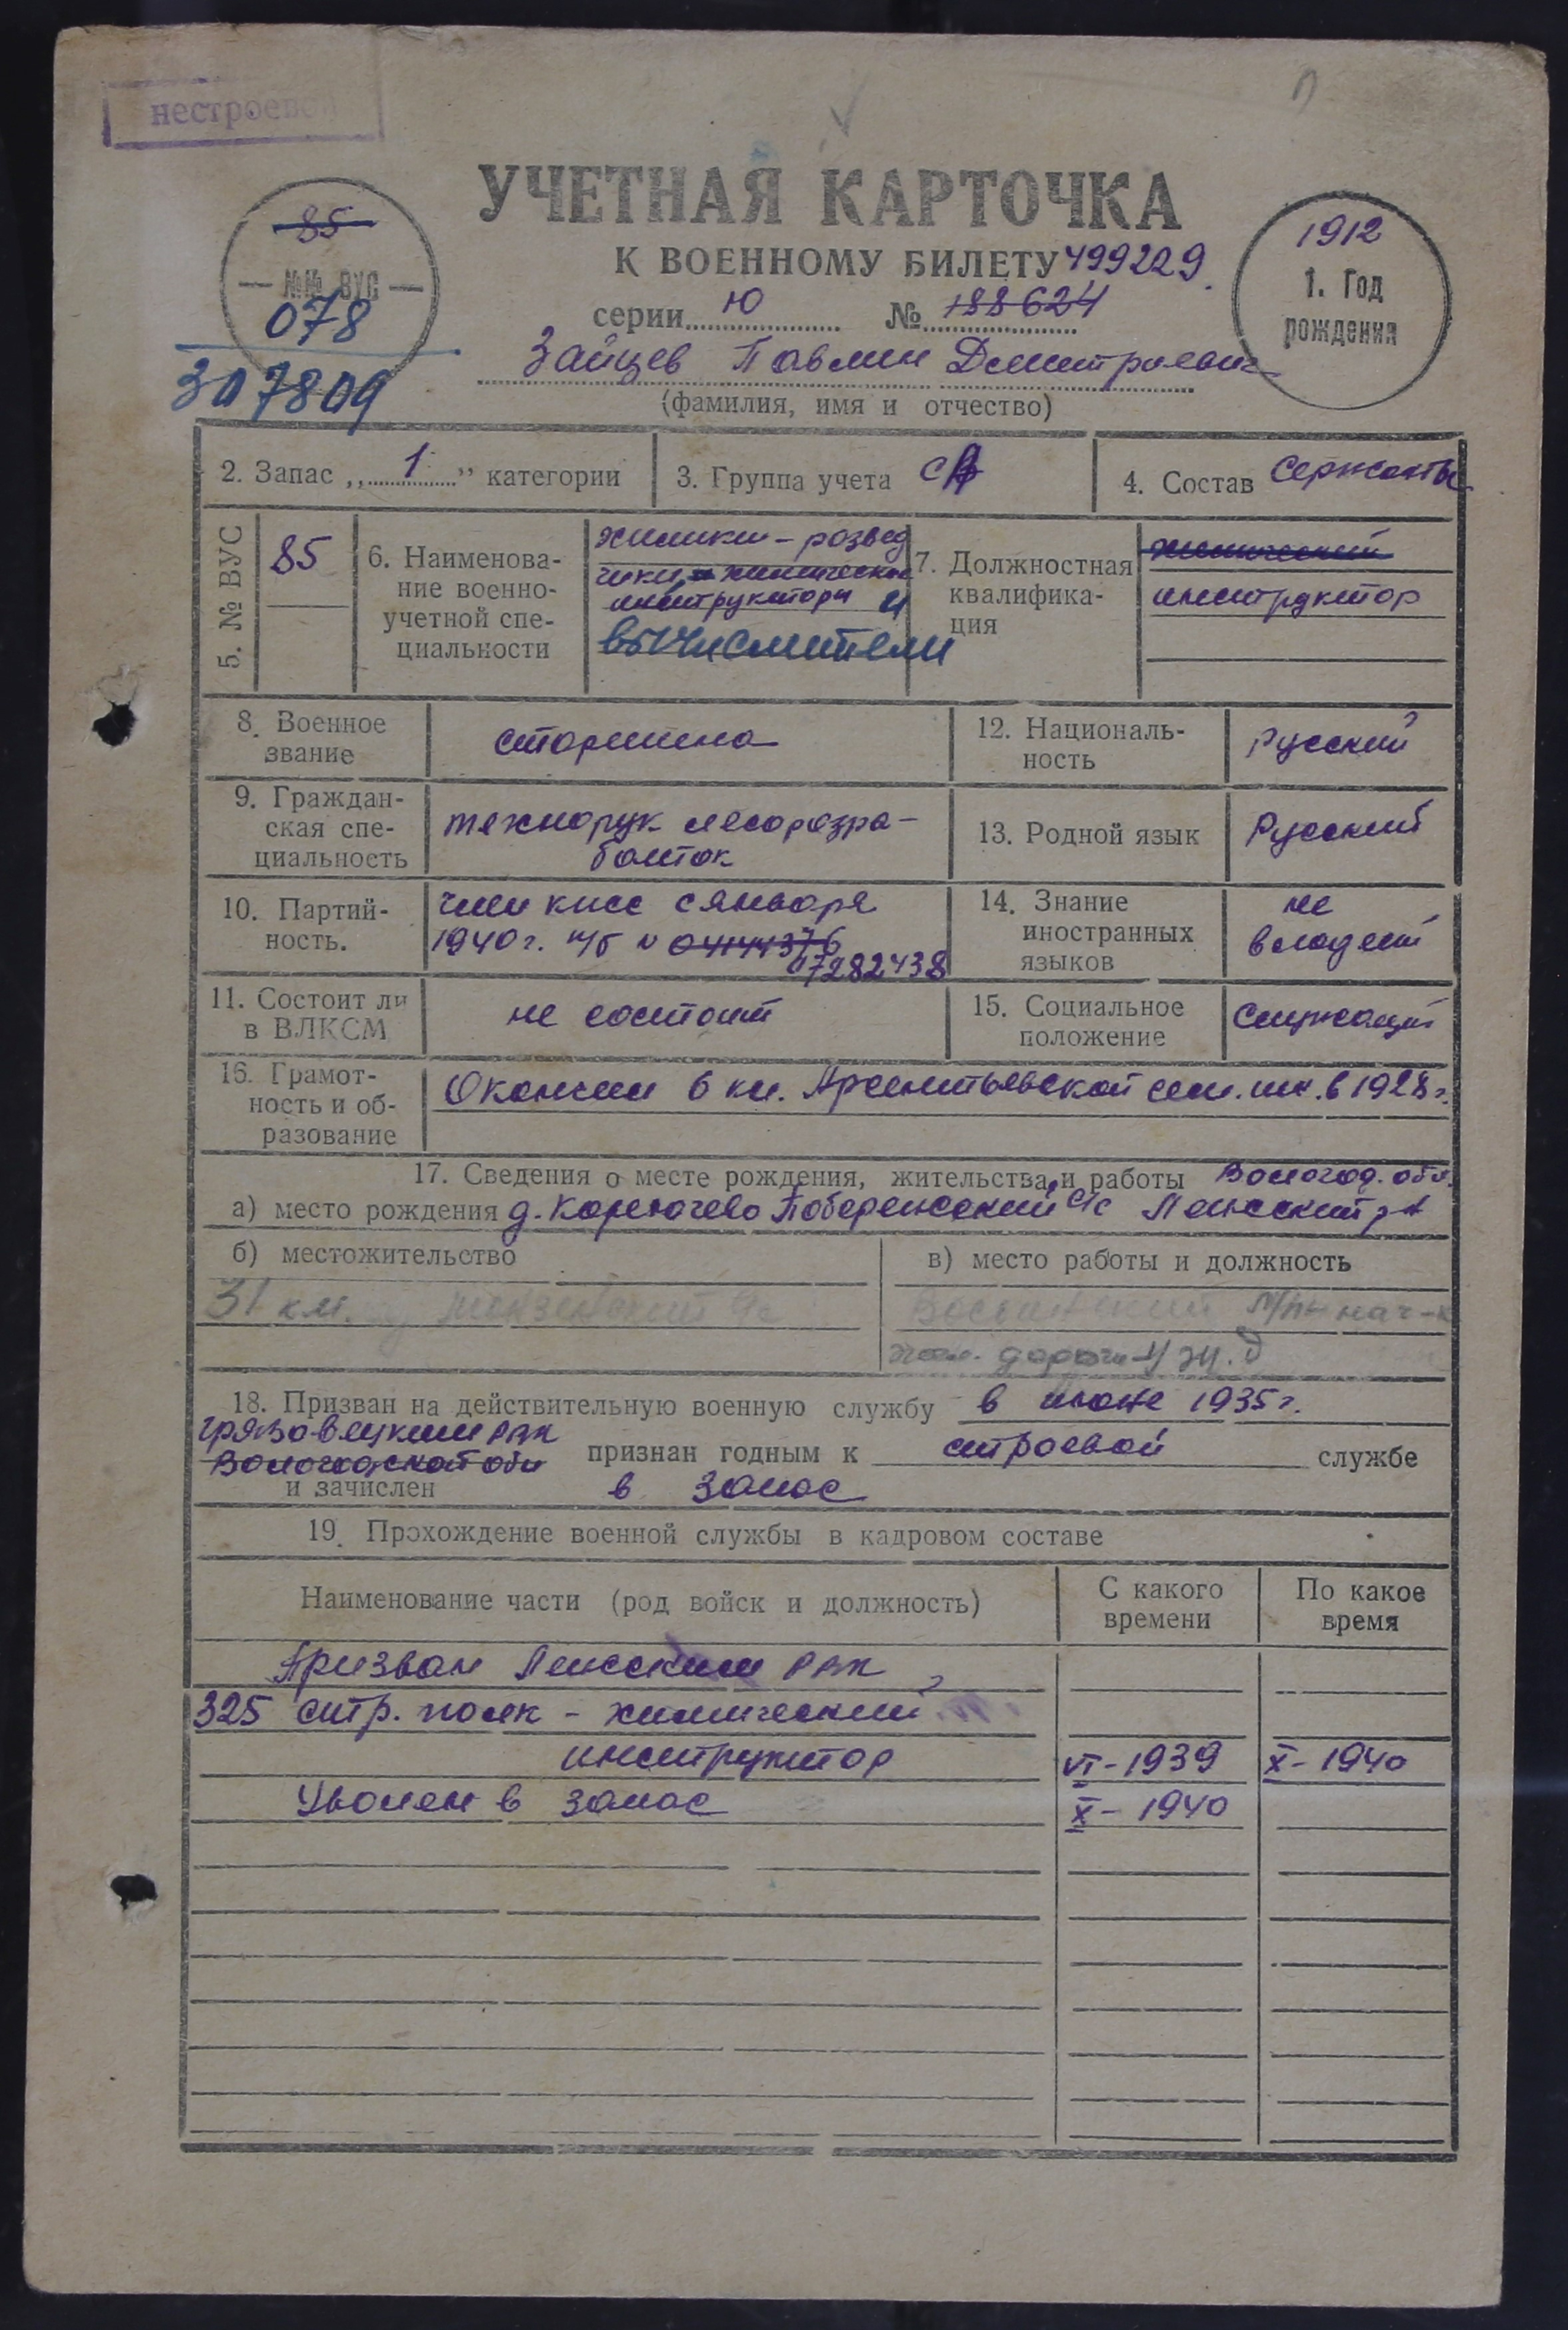 нестроевой
УЧЕТНАЯ КАРТОЧКА
К ВОЕННОМУ БИЛЕТУ 499229
серии Ю № 188624
85
№№ ВУС
078
307809
1912
1. Год
рождения
Зайцев Павлин Дмитриевич
(фамилия, имя и отчество)
2. Запас „ 1 " категории
3. Группа учета СА
4. Состав Сержанты
5. № ВУС
85
6. Наименова-
ние военно-
учетной спе-
циальности
химики-развед
чики, химические
инструктора и
вычислители
7. Должностная
квалифика-
ция
химический
инструктор
8. Военное
звание
старшина
12. Националь-
ность
Русский
9. Граждан-
ская спе-
циальность
технорук лесоразра-
боток
13. Родной язык
Русский
10. Партий-
ность.
член кпсс с января
1940 г. п/б N 04144376
07282438
14. Знание
иностранных
языков
не
владеет
11. Состоит ли
в ВЛКСМ
не состоит
15. Социальное
положение
Служащий
16. Грамот-
ность и об-
разование
Окончил 6 кл. сем. шк. в 1928 г.
17. Сведения о месте рождения, жительства и работы Вологод. обл.
а) место рождения д. с/с р-н
б) местожительство
31 км.
в) место работы и должность
М/п нач-к
жел. дороги
18. Призван на действительную военную службу в июне 1935 г.
Грязовецким РВК
Вологодской обл
признан годным к строевой службе
и зачислен в запас
19. Прохождение военной службы в кадровом составе
Наименование части (род войск и должность)
С какого
времени
По какое
время
Призван РВК
325 стр. полк - химический
инструктор VI-1939 X-1940
Уволен в запас X-1940